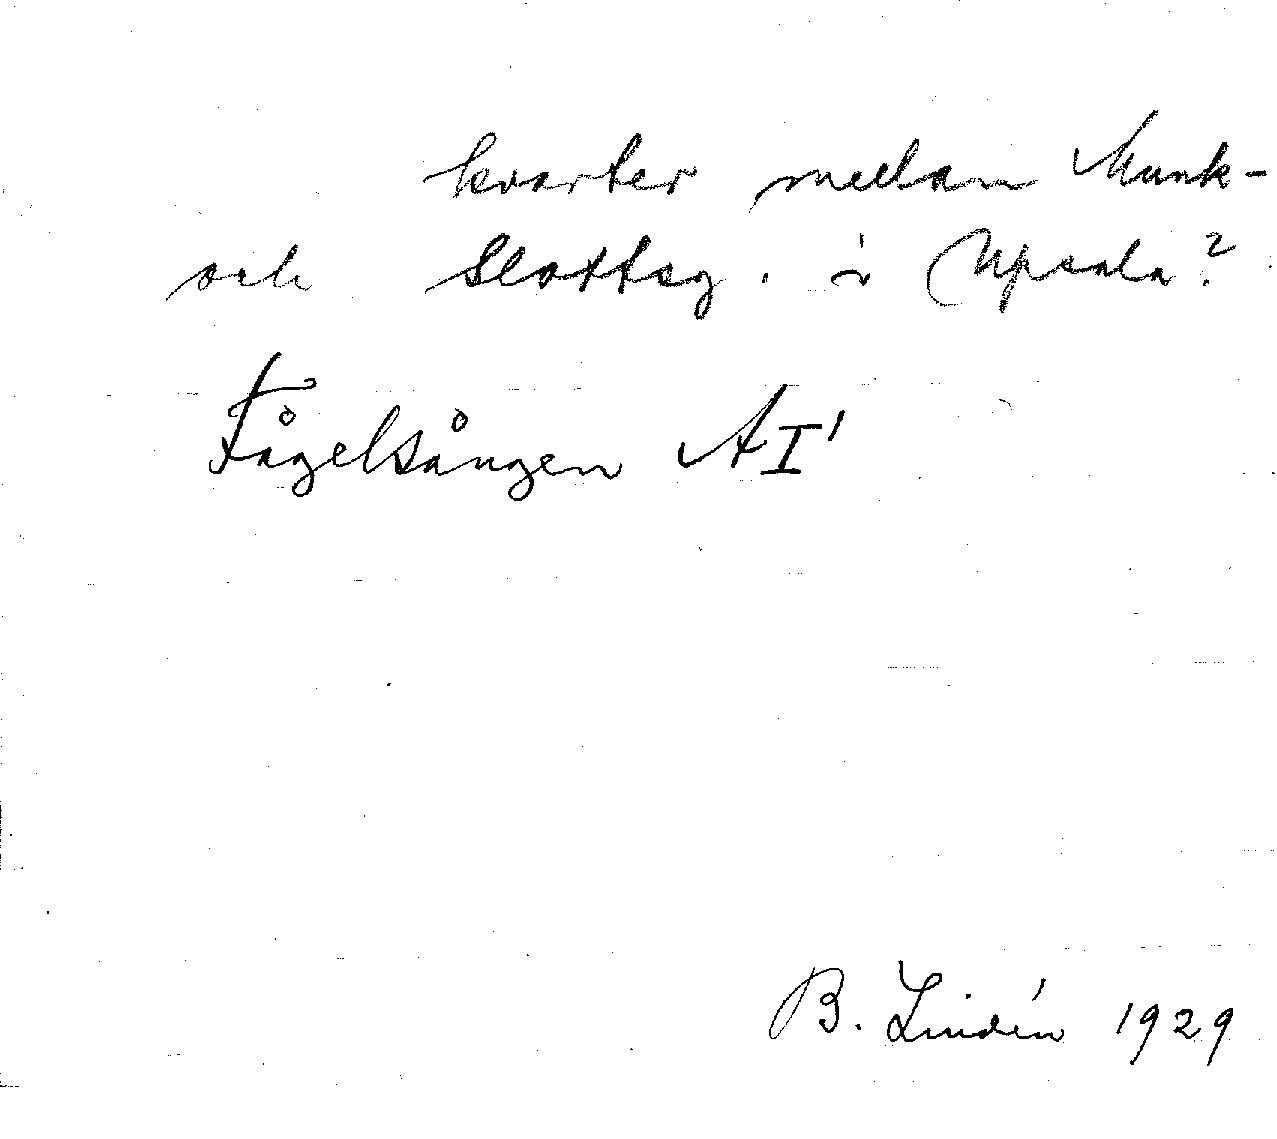 kvarter mellan Munk-
och Slottsg. i Upsala?
Fågelsången AI'
B. Lindén 1929